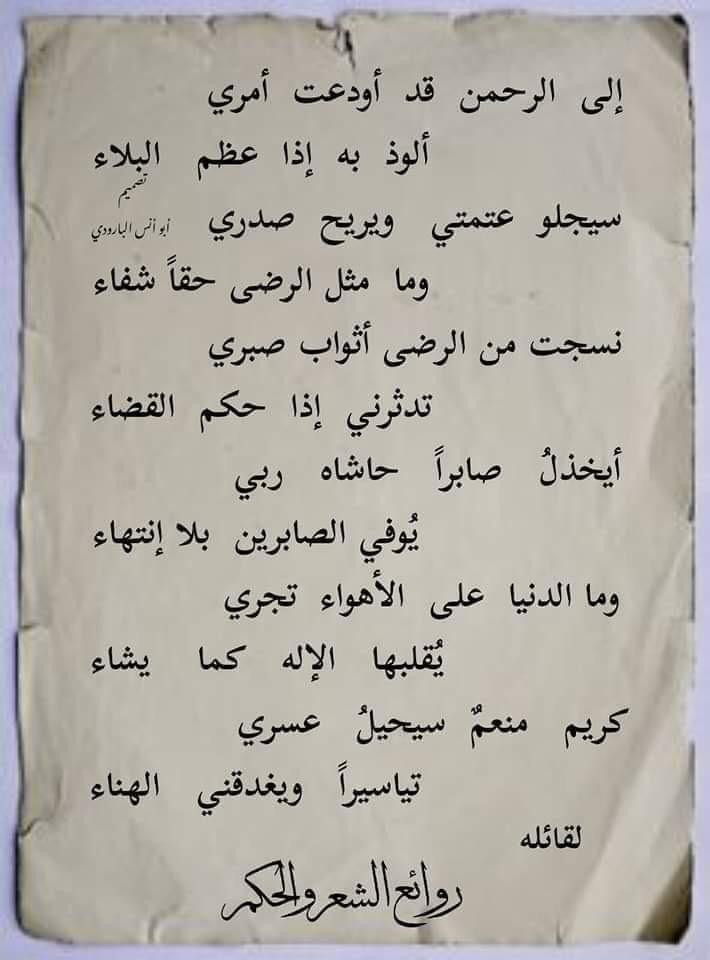 إلى الرحمن قد أودعت أمري
ألوذ به إذا عظم البلاء
تصميم
أبو أنس البارودي
سيجلو عتمتي ويريح صدري
وما مثل الرضى حقاً شفاء
نسجت من الرضى أثواب صبري
تدثرني إذا حكم القضاء
أيخذلُ صابراً حاشاه ربي
يُوفي الصابرين بلا إنتهاء
وما الدنيا على الأهواء تجري
يُقلبها الإله كما يشاء
كريم منعمٌ سيحيلُ عسري
تياسيراً ويغدقني الهناء
لقائله
روائع الشعر والحكم